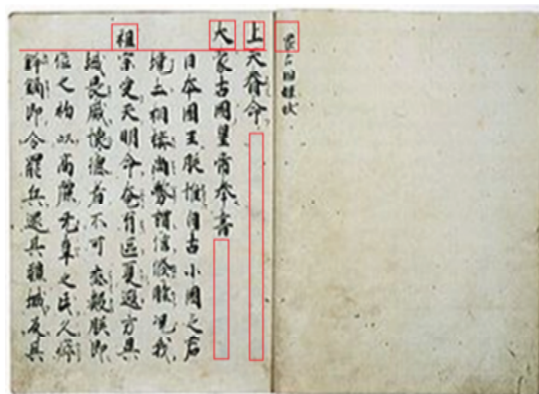 蒙古国牒状
上天眷命
大蒙古國皇帝奉書
日本國王朕惟自古小國之君
境土相接尚務講信修睦況我
祖宗受天明命奄有區夏遐方異
域畏威懷德者不可悉數朕即
位之初以高麗无辜之民久瘁
鋒鏑即令罷兵還其疆域反其